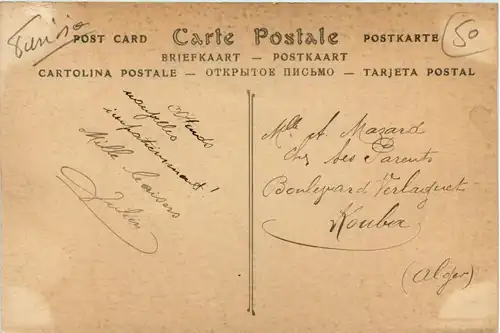 Tunisie
POST CARD Carte Postale POSTKARTE
50
BRIEFKAART — POSTKAART
CARTOLINA POSTALE — ОТКРЫТОЕ ПИСЬМО — TARJETA POSTAL
attends
nouvelles
impatiemment!
Mille baisers
Mlle A. Mazard
chez ses Parents
Boulevard Verlaguet
Kouba
(Alger)